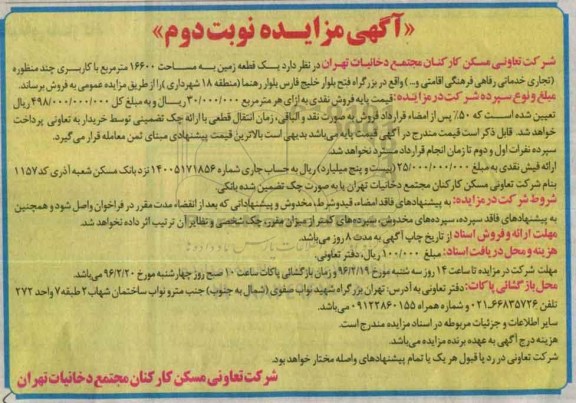 «آگهی مزایده نوبت دوم»
شرکت تعاونی مسکن کارکنان مجتمع دخانیات تهران در نظر دارد یک قطعه زمین به مساحت ۱۶۶۰۰ مترمربع با کاربری چند منظوره
(تجاری خدماتی رفاهی فرهنگی اقامتی و...) واقع در بزرگراه فتح بلوار خلیج فارس بلوار رهنما (منطقه ۱۸ شهرداری) را از طریق مزایده عمومی به فروش برساند.
مبلغ و نوع سپرده شرکت در مزایده: قیمت پایه فروش نقدی به ازای هر مترمربع ۳۰/۰۰۰/۰۰۰ ریال و به مبلغ کل ۴۹۸/۰۰۰/۰۰۰/۰۰۰ ریال
تعیین شده است که ۵۰٪ پس از امضاء قرارداد فروش به صورت نقد و الباقی، زمان انتقال قطعی با ارائه چک تضمینی توسط خریدار به تعاونی پرداخت
خواهد شد. قابل ذکر است قیمت مندرج در آگهی قیمت پایه می‌باشد بدیهی است بالاترین قیمت پیشنهادی مبنای ثمن معامله قرار می‌گیرد.
سپرده نفرات اول و دوم تا زمان انجام قرارداد مسترد نخواهد شد.
ارائه فیش نقدی به مبلغ ۲۵/۰۰۰/۰۰۰/۰۰۰ (بیست و پنج میلیارد) ریال به حساب جاری شماره ۱۴۰۰۵۱۷۱۸۵۶ نزد بانک مسکن شعبه آذری کد ۱۱۵۷
بنام شرکت تعاونی مسکن کارکنان مجتمع دخانیات تهران یا به صورت چک تضمین شده بانکی.
شروط شرکت در مزایده: به پیشنهادهای فاقد امضاء، قید و شرط، مخدوش و پیشنهاداتی که بعد از انقضاء مدت مقرر در فراخوان واصل شود و همچنین
به پیشنهادهای فاقد سپرده، سپرده‌های مخدوش، سپرده‌های کمتر از میزان مقرر، چک شخصی و نظایر آن ترتیب اثر داده نخواهد شد.
مهلت ارائه و فروش اسناد: از تاریخ چاپ آگهی به مدت ۸ روز می‌باشد.
هزینه و محل دریافت اسناد: مبلغ ۱۰۰/۰۰۰ ریال، دفتر تعاونی.
مهلت شرکت در مزایده تا ساعت ۱۴ روز سه شنبه مورخ ۹۶/۲/۱۹ و زمان بازگشائی پاکات ساعت ۱۰ صبح روز چهارشنبه مورخ ۹۶/۲/۲۰ می‌باشد.
محل بازگشائی پاکات: دفتر تعاونی به آدرس: تهران بزرگراه شهید نواب صفوی (شمال به جنوب) جنب مترو نواب ساختمان شهاب ۲ طبقه ۷ واحد ۲۷۲
تلفن ۶۶۸۳۵۷۲۶-۰۲۱ و شماره همراه ۰۹۱۲۳۸۶۰۱۵۵ می‌باشد.
سایر اطلاعات و جزئیات مربوطه در اسناد مزایده مندرج است.
هزینه درج آگهی به عهده برنده مزایده می‌باشد.
شرکت تعاونی در رد یا قبول هر یک یا تمام پیشنهادهای واصله مختار خواهد بود.
شرکت تعاونی مسکن کارکنان مجتمع دخانیات تهران